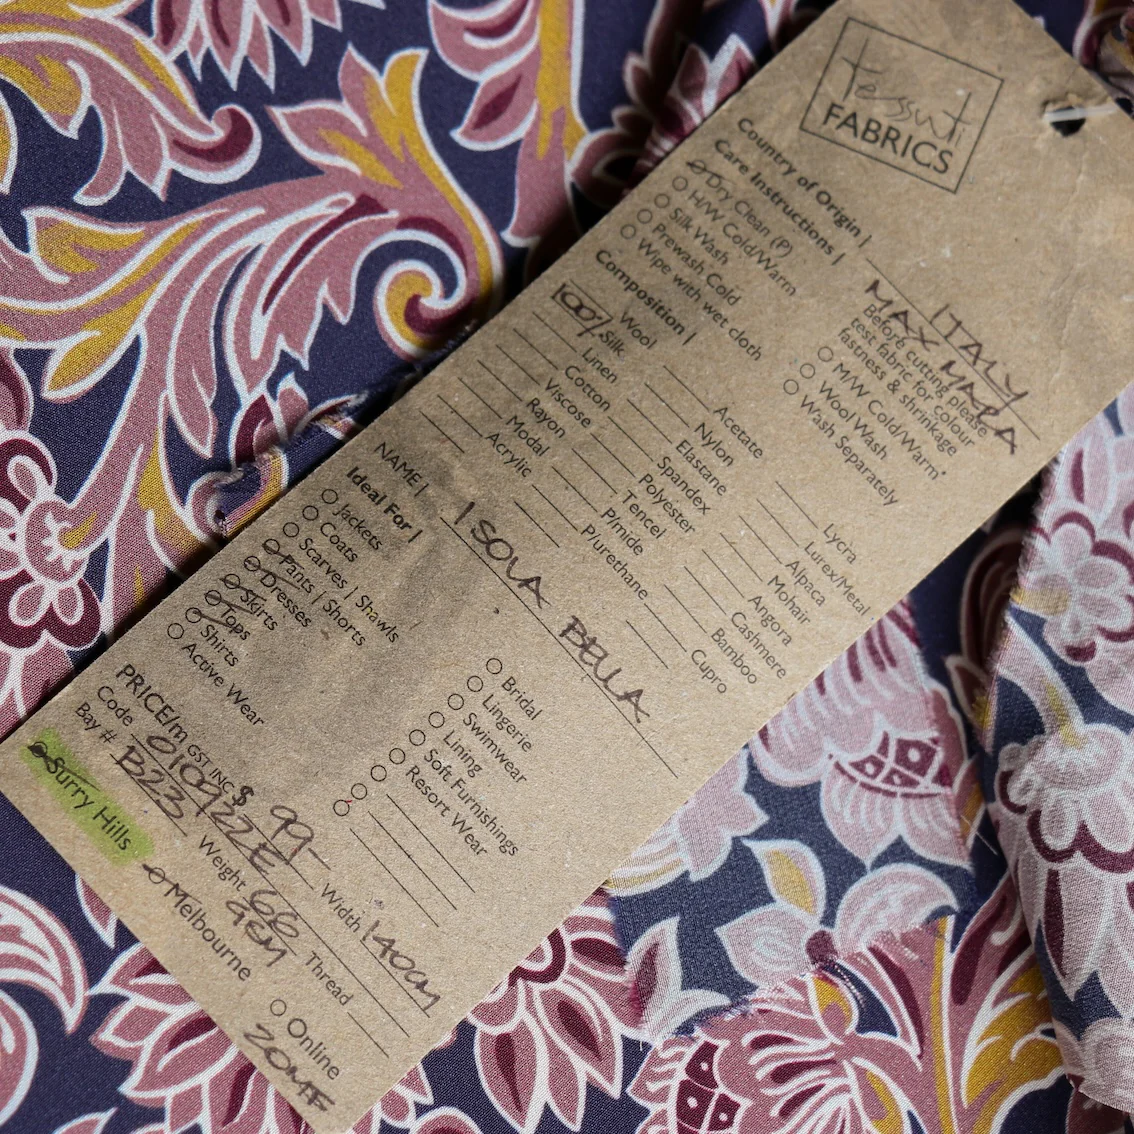 tessuti
FABRICS
Country of Origin | ITALY
MAX MARA
Care Instructions | Before cutting please
test fabric for colour
fastness & shrinkage
Dry Clean (P)
H/W Cold/Warm
Silk Wash
Prewash Cold
Wipe with wet cloth
M/W Cold/Warm*
Wool Wash
Wash Separately
Composition |
Wool
100% Silk
Linen
Cotton
Viscose
Rayon
Modal
Acrylic
Acetate
Nylon
Elastane
Spandex
Polyester
Tencel
P/mide
P/urethane
Lycra
Lurex/Metal
Alpaca
Mohair
Angora
Cashmere
Bamboo
Cupro
NAME | ISOLA BELLA
Ideal For |
Jackets
Coats
Scarves | Shawls
Pants | Shorts
Dresses
Skirts
Tops
Shirts
Active Wear
Bridal
Lingerie
Swimwear
Lining
Soft Furnishings
Resort Wear
PRICE/m GST INC $ 99-
Code 010922E Width 140cm
Bay # B223 Weight GE Thread
Surry Hills Melbourne Online